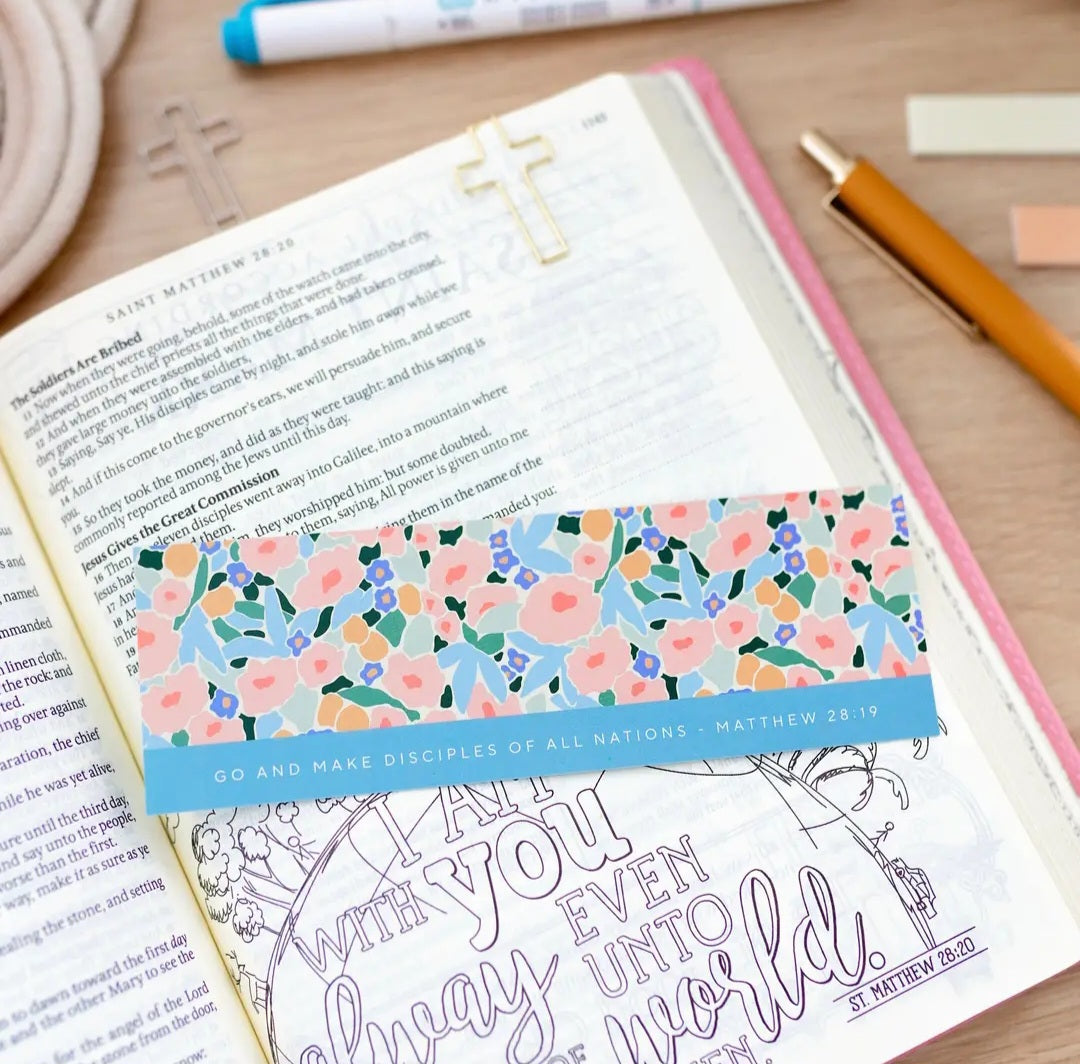 1145
SAINT MATTHEW 28:20
The Soldiers Are Bribed
11 Now when they were going, behold, some of the watch came into the city,
and shewed unto the chief priests all the things that were done.
12 And when they were assembled with the elders, and had taken counsel,
they gave large money unto the soldiers,
13 Saying, Say ye, His disciples came by night, and stole him away while we
slept.
14 And if this come to the governor's ears, we will persuade him, and secure
you.
15 So they took the money, and did as they were taught: and this saying is
commonly reported among the Jews until this day.
Jesus Gives the Great Commission
16 Then eleven disciples went away into Galilee, into a mountain where
Jesus had them.
17 And they worshipped him: but some doubted.
18 to them, saying, All power is given unto me
in he
19 them in the name of the
manded you:
GO AND MAKE DISCIPLES OF ALL NATIONS - MATTHEW 28:19
I AM
WITH you
alway
EVEN
UNTO
world.
ST. MATTHEW 28:20
s and
named
mmanded
linen cloth,
the rock: and
ted.
ing over against
aration, the chief
hile he was yet alive,
ure until the third day,
and say unto the people,
worse than the first.
way, make it as sure as ye
ealing the stone, and setting
dawn toward the first day
and the other Mary to see the
for the angel of the Lord
stone from the door,